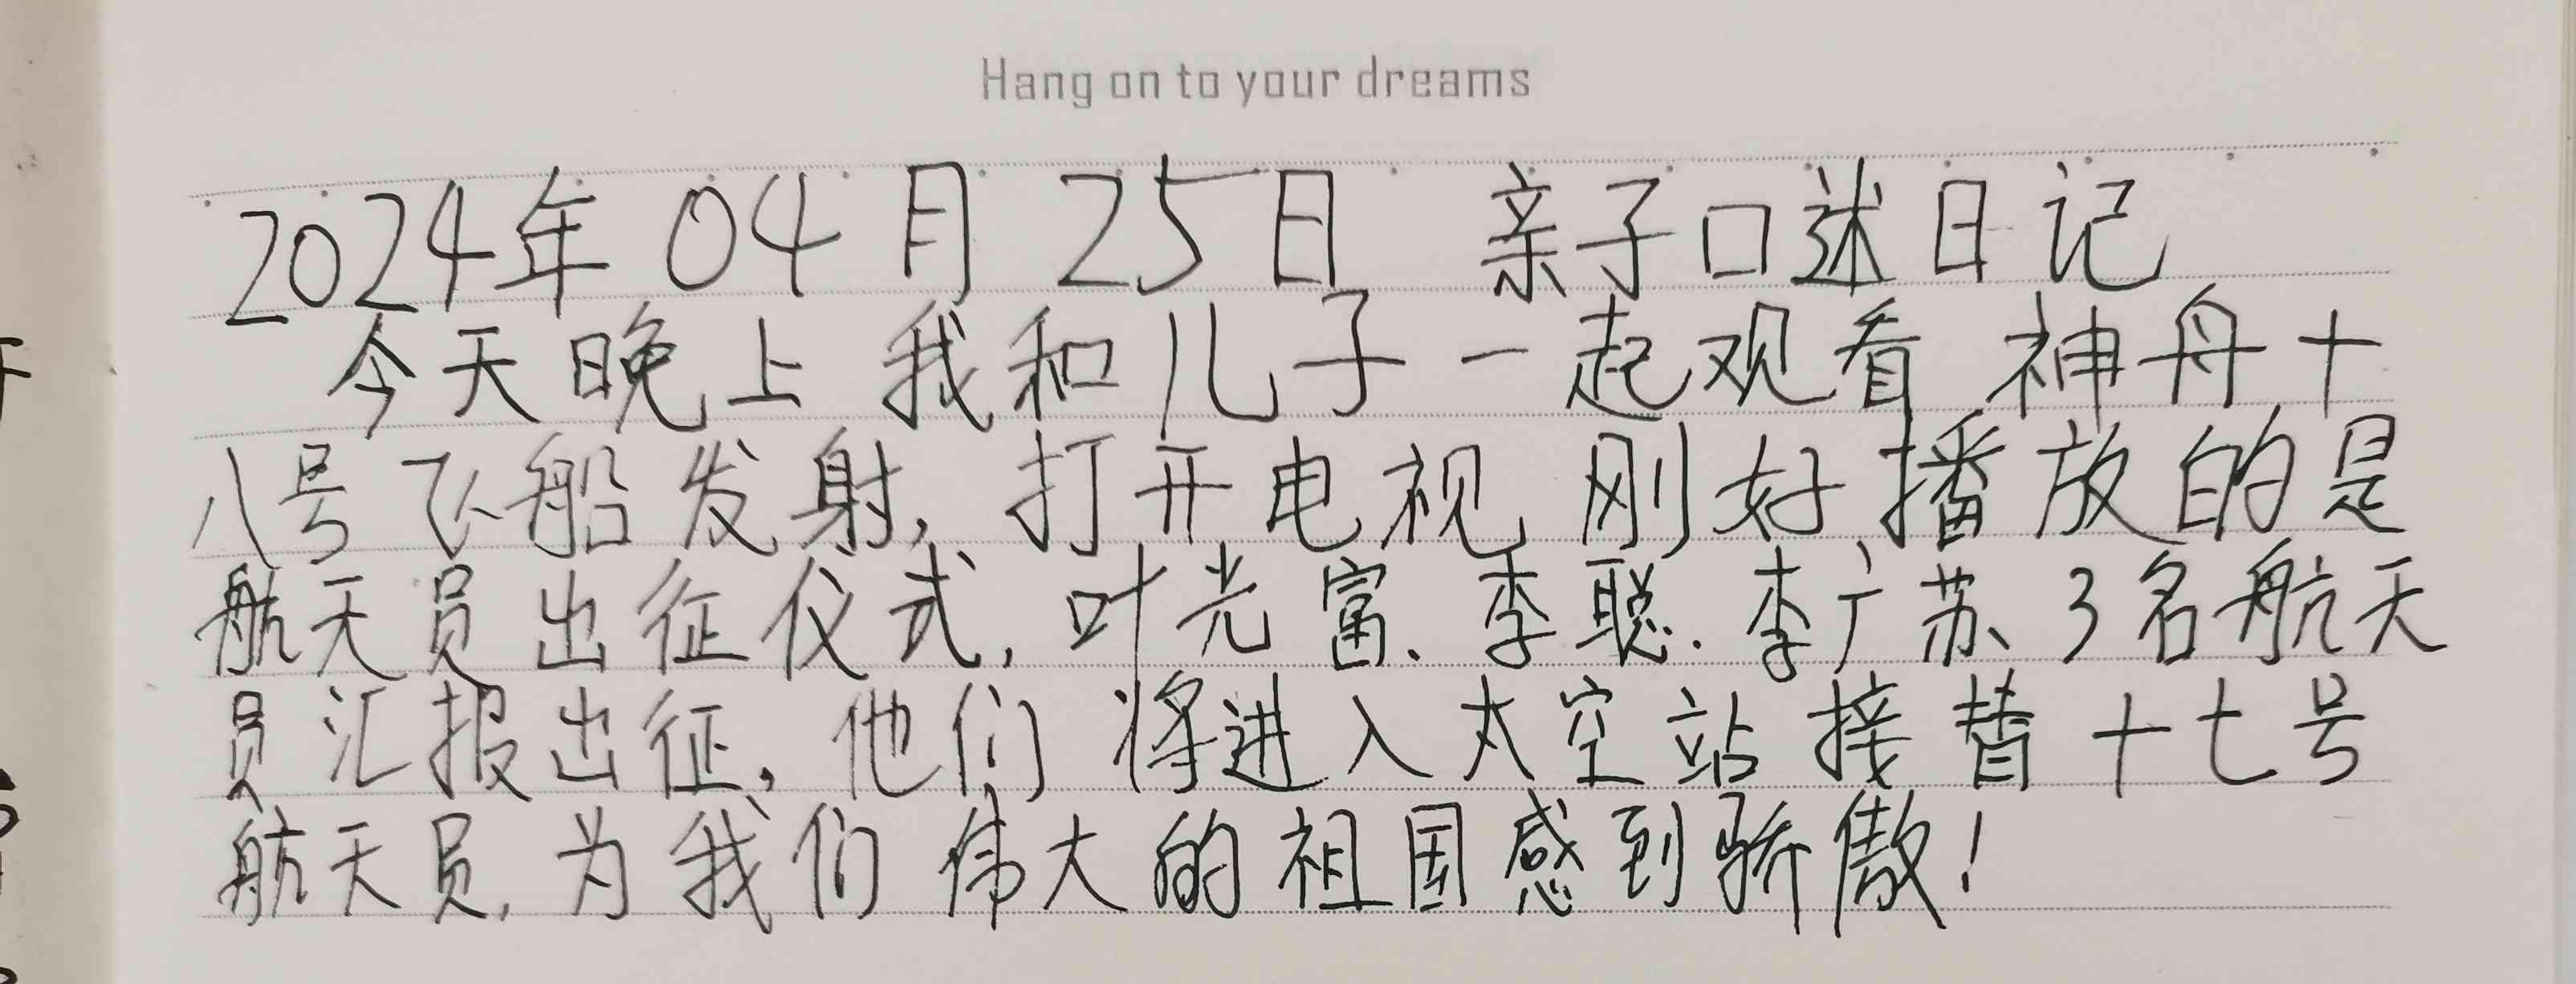 Hang on to your dreams
2024年04月25日 亲子口述日记
今天晚上我和儿子一起观看神舟十
八号飞船发射,打开电视刚好播放的是
航天员出征仪式,叶光富、李聪、李广苏3名航天
员汇报出征,他们将进入太空站接替十七号
航天员,为我们伟大的祖国感到骄傲!